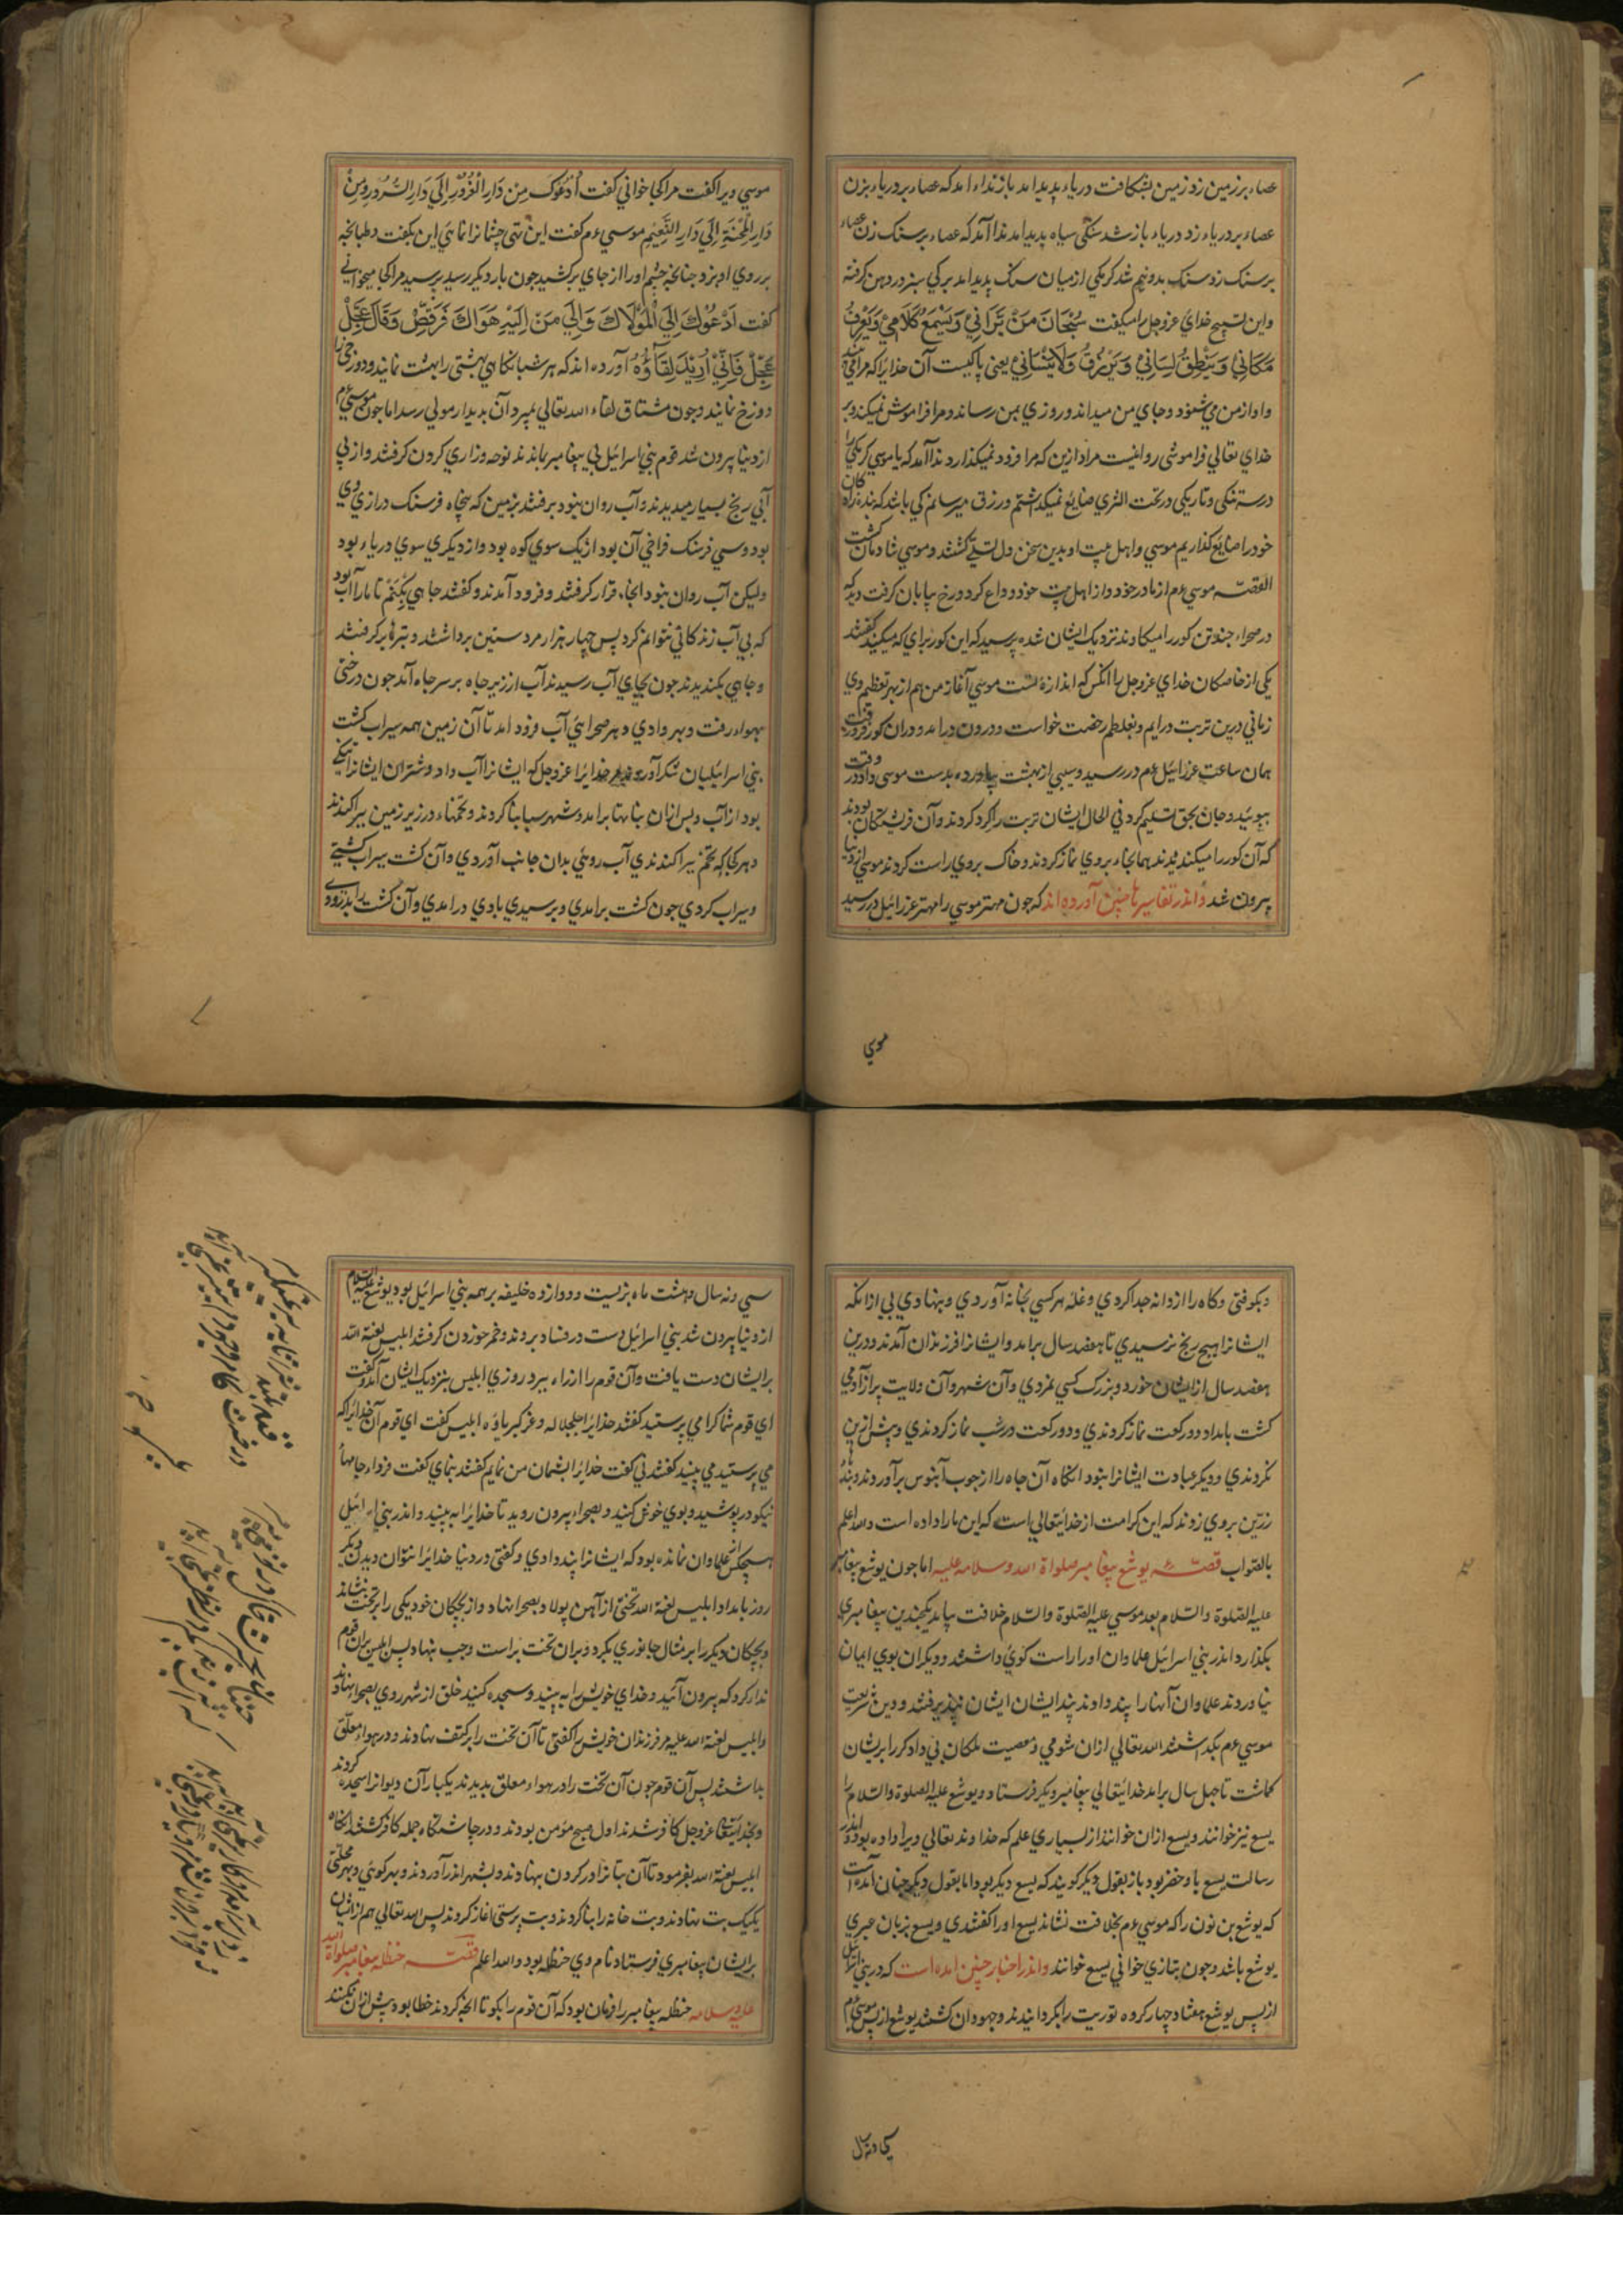 عصاء بر زمین زد زمین بشکافت دریاء پدید امد باز نداء امد که عصاء بر دریاء بزن
عصاء بر دریاء زد دریاء باز شد سنکی سیاه پدید امد ندا آمد که عصاء بر سنک زن عصاء
بر سنک زد سنک بدو نیم شد کرمکی از میان سنک پدید امد برکی سبز در دهن کرفته
و این تسبیح خدای عزوجل را میکفت سُبْحَانَ مَنْ یَّرَانِيْ وَیَسْمَعُ کَلَامِيْ وَیَعْرِفُ
مَکَانِيْ وَیَنْطِقُ لِسَانِيْ وَیَرْزُقُ وَلَایَنْسَانِيْ یعنی پاکیست آن خدایرا که مرا می
و اواز من می شنود و جای من میداند و روزی بمن رساند و مرا فراموش نمیکند و بر
خدای تعالي فراموشی روا نیست مراد ازین که مرا فرود نمیکذارد ندا آمد که یا موسي کرمکی را
در ته سنکی و تاریکی و در تحت الثری ضایع نمیکذاشتم و رزق میرسانم کی باشد که بندکان
خود را ضایع کذاریم موسي و اهل بیت او بدین سخن دل تسلي کشتند و موسي شادمان کشت
القصّه موسي ءم از مادر خود و از اهل بیت خود وداع کرد و رخ بیابان کرفت دید که
در صحراء چند تن کور را میکاوند نزدیک ایشان شده پرسید که این کور برای که میکنید کفتند
یکی از خاصکان خدای عزوجل را انکس که اندازهٔ تست موسي آغاز من هم از بهر تعظیم وی
زمانی درین تربت درایم و بغلطم رخصت خواست و درون درامد و دران کور فرو رفت
همان ساعت عزرائیل ءم در رسید و سیبی از بهشت بیاورده بدست موسی داد در وقت
ببوئید و جان بحق تسلیم کرد في الحال ایشان تربت را کرد کردند و آن فرشتکان بودند
که آن کور را میکندیدند همانجاء بروی نماز کردند و خاک بروی راست کردند موسي از دنیا
بیرون شد و اندر تفاسیرها چنین آورده اند که چون مهتر موسي را مهتر عزرائیل در رسید
موسي
موسي ویرا کفت مرا کجا خوانی کفت اَدْعُوکَ مِنْ دَارِ الْغُرُوْرِ اِلَي دَارِ السُّرُوْرِ وَمِنْ
دَارِ الْمِحْنَةِ اِلَي دَارِ النَّعِیْمِ موسي ءم کفت این تني چشمانرا نمائی این بکفت و طبانچه
بر روی او بزد چنانچه چشم اورا از جای برکشید چون بار دیکر رسید پرسید مرا کجا میخوانی
کفت اَدْعُوْكَ اِلَي الْمَوْلَاكَ وَاِلَي مَنْ اِلَیْهِ هَوَاكَ فَرَقَصَ وَقَالَ عَجِّلْ
عَجِّلْ فَاِنِّيْ اُرِیْدُ لِقَاؤُهُ آورده اند که هر شبانکاهی بهشتی را بهشت نمایند و دوزخی را
دوزخ نمایند و چون مشتاق لقاء الله تعالي بمیرد آن بدیدار مولي رسد اما چون موسي ءم
از دنیا بیرون شد قوم بنی اسرائیل بی پیغامبر بماندند نوحه و زاری کردن کرفتند و از بي
آبي رنج بسیار میدیدند و آب روان نبود برفتند بزمین که پنجاه فرسنک درازی وی
بود و سی فرسنک فراخی آن بود از یک سوی کوه بود و از دیکری سوی دریاء بود
ولیکن آب روان نبود انجاء قرار کرفتند و فرود آمدند و کفتند چاهی بکنم تا مارا آب بود
که بی آب زندکانی نتوانم کرد پس چهار هزار مرد ستین برداشتند و تبرها برکرفتند
و چاهی بکندیدند چون بجای آب رسیدند آب از زیر چاه بر سر چاه آمد چون درختی
بهواء رفت و بهر وادی و هر صحرائي آب فرود امد تا آن زمین همه سیراب کشت
بنی اسرائیلیان شکر آوردند مر خدایرا عزوجل که ایشانرا آب داد و شتران ایشانرا
بود از آب و پس ازان بناها برامد و شهر سبا بنا کردند و تخمهاء در زیر زمین پراکندند
و هر کجا که تخم پراکندندی آب روئی بدان جانب آوردی و آن کشت سیراب کشتی
و سیراب کردی چون کشت برامدی و برسیدی بادی درامدی و آن کشت را بدرودی
و بکوفتی و کاه را از دانه جدا کردی و غلّه هر کسی بخانه آوردی و بنهادی بی ازانکه
ایشانرا هیچ رنج نرسیدی تا هفصد سال برامد و ایشانرا فرزندان آمدند و درین
هفصد سال از ایشان خورد و بزرک کسی نمردی و آن شهر و آن ولایت پر از آدمی
کشت بامداد دو رکعت نماز کردندی و دو رکعت در شب نماز کردندی و بیش ازین
نکردندی و دیکر عبادت ایشانرا نبود انکاه آن چاه را از چوب آبنوس برآوردند و بندها
زرّین بروی زدند که این کرامت از خدایتعالي است که این مارا داده است والله اعلم
بالصّواب قصّه یوشع پیغامبر صلواة الله وسلامه علیه اما چون یوشع پیغامبر
علیه الصّلوة والسّلام بعد موسي علیه الصّلوة والسّلام خلافت بیامد یکچندین پیغامبری
بکذارد اندر بنی اسرائیل علماوان او را راست کوی داشتند و دیکران بوی ایمان
نیاوردند علماوان آنهارا پند دادند پند ایشان ایشان نپذیرفتند و دین شریعت
موسي ءم بکداشتند الله تعالي ازان شومي و معصیت ملکان بي دادکر را بریشان
کماشت تا چهل سال برامد خدایتعالي پیغامبر دیکر فرستاد و یوشع علیه الصلوة والسّلام را
یسع نیز خوانند و یسع ازان خوانند از بسیاری علم که خداوند تعالي ویرا داده بود و اندر
رسالت یسع با و خضر بود باز بقول دیکر کویند که یسع دیکر بود اما بقول دیکر چنان آمده است
که یوشع بن نون را که موسي ءم بخلافت نشاند یسع اورا کفتندی و یسع بزبان عبری
یوشع باشد و چون بتازی خوانی یسع خوانند و اندر اخبار چنین امده است که در بنی اسرائیل
از پس یوشع هفتاد و چهار کروه توریت را بکردانیدند و جهودان کشتند یوشع از پس موسي ءم
سی و نه سال
سی و نه سال و هشت ماه بزیست و دوازده خلیفه بر همه بنی اسرائیل بود یوشع علیه السّلام
از دنیا بیرون شد بنی اسرائیل دست در فساد بردند و خمر خوردن کرفتند ابلیس لعنة الله
بر ایشان دست یافت و آن قوم را از راه ببرد روزی ابلیس بنزدیک ایشان آمد و کفت
ای قوم شما کرا می پرستید کفتند خدایرا جل جلاله و عز کبریاؤه ابلیس کفت ای قوم آن خدایرا که
می پرستید می بینید کفتند نی کفت خدایرا بشمایان من نمایم کفتند بنمای کفت فرداء جامهاء
نیکو درپوشید و بوی خوش کنید و بصحراء بیرون روید تا خدایرا به بینید و اندر بنی اسرائیل
هیچکس از علماوان نمانده بود که ایشانرا پند دادی و کفتی در دنیا خدایرا نتوان دیدن دیکر
روز بامداد ابلیس لعنة الله تختی از آهن پولاد بصحرا نهاد و از بچکان خود یکی را بر تخت نشاند
و بچکان دیکر را بر مثال جانوری بکرد و بران تخت براست و چپ بنهاد پس ابلیس بران قوم
ندا کرد که بیرون آئید و خدای خویش را به بینید و سجده کنید خلق از شهر روی بصحرا نهاد
و ابلیس لعنة الله علیه مر فرزندان خویش را کفتی تا آن تخت را بر کتف نهادند و در هواء معلّق
بداشتند پس آن قوم چون آن تخت را در هواء معلق بدیدند یکبار آن دیوانرا سجده کردند
و بخدایتعالی عزوجل کافر شدند اول صبح مؤمن بودند و در چاشتکاه جمله کافر کشتند انکاه
ابلیس لعنة الله بفرمود تا آن بتانرا در کردن بنهادند و بشهر اندر آوردند و بهر کوئی و بهر محلّتی
یکیک بت بنهادند و بت خانه را بنا کردند و بت پرستی اغاز کردند پس الله تعالي هم از ایشان
بر ایشان پیغامبری فرستاد نام وی حنظله بود والله اعلم قصّه حنظله پیغامبر صلواة الله
علیه وسلامه حنظله پیغامبر را فرمان بود که آن قوم را بکو تا انچه کردند خطا بود بیش ازان نکنند